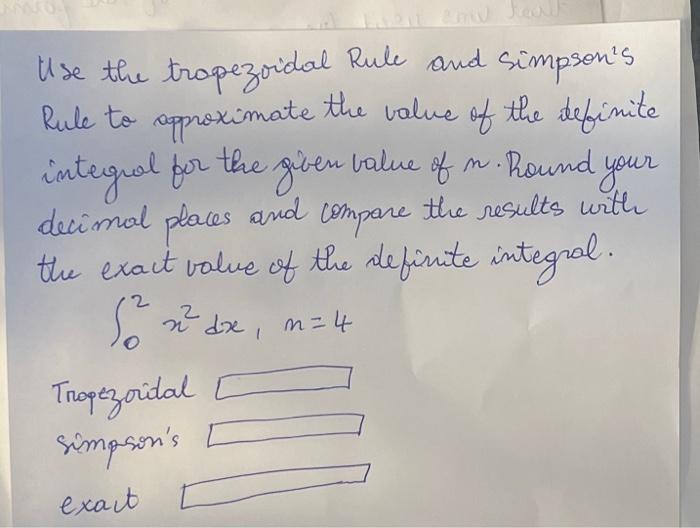 Use the trapezoidal Rule and simpson's
Rule to approximate the value of the definite
integral for the given value of n. Round your
decimal places and compare the results with
the exact value of the definite integral.
∫₀² x² dx, n = 4
Trapezoidal
simpson's
exact